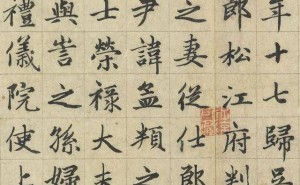 年十七歸
郎松江府判
之妻從仕郎
尹諱孟頫之
士榮祿大夫
與訔之孫婦
禮儀院使上